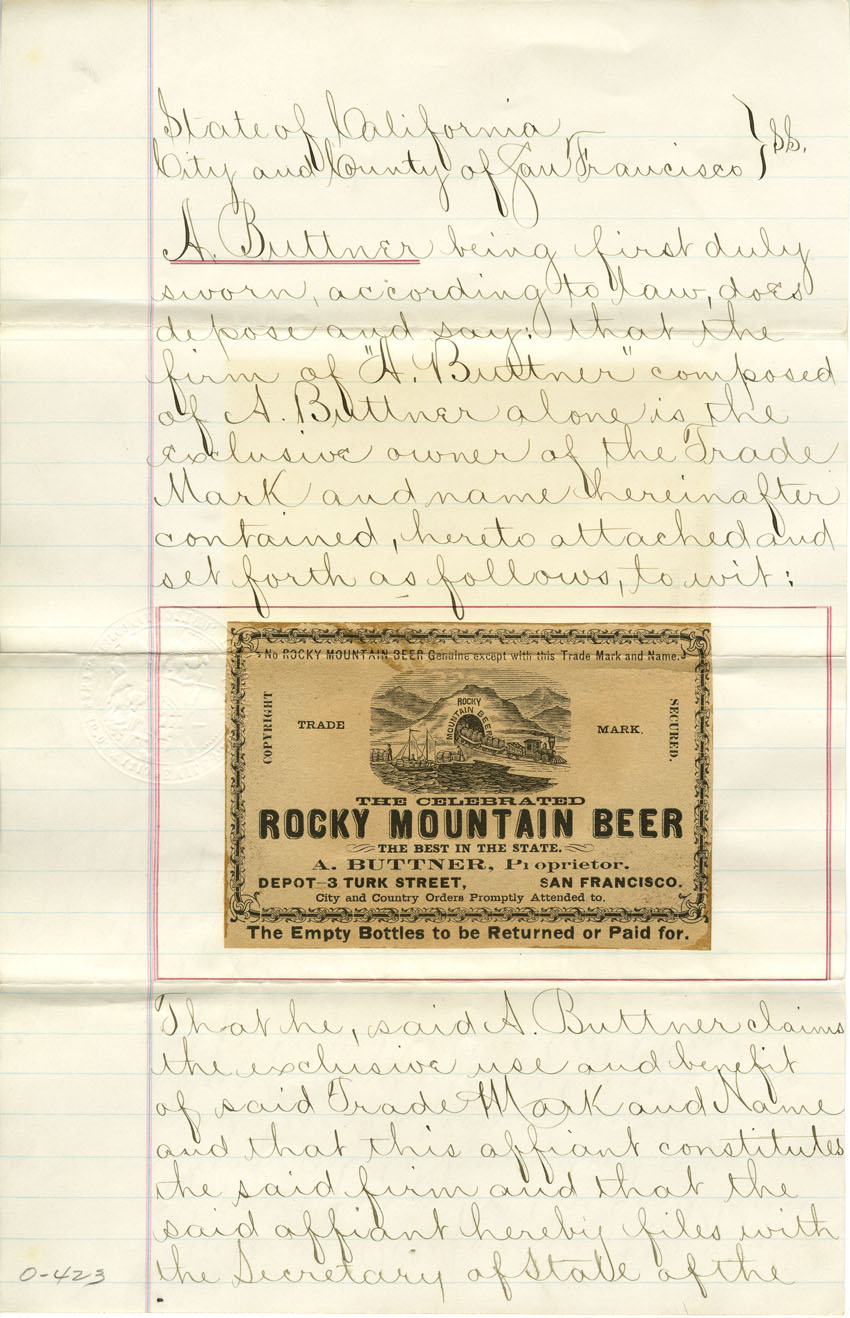 State of California } ss.
City and County of San Francisco
A. Buttner being first duly
sworn, according to law, does
depose and say: that the
firm of "A. Buttner" composed
of A. Buttner alone is the
exclusive owner of the Trade
Mark and name hereinafter
contained, hereto attached and
set forth as follows, to wit:
No ROCKY MOUNTAIN BEER Genuine except with this Trade Mark and Name.
COPYRIGHT
TRADE
ROCKY
MOUNTAIN BEER
MARK.
SECURED.
THE CELEBRATED
ROCKY MOUNTAIN BEER
THE BEST IN THE STATE.
A. BUTTNER, Proprietor.
DEPOT-3 TURK STREET, SAN FRANCISCO.
City and Country Orders Promptly Attended to.
The Empty Bottles to be Returned or Paid for.
That he, said A. Buttner claims
the exclusive use and benefit
of said Trade Mark and Name
and that this affiant constitutes
the said firm and that the
said affiant hereby files with
the Secretary of State of the
0-423